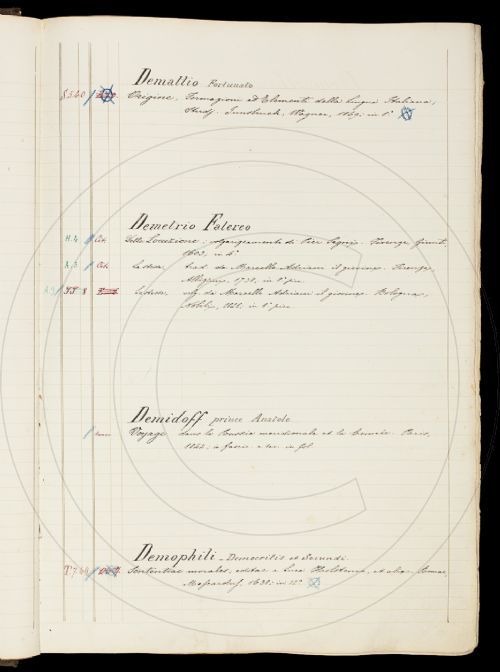 Demattio Fortunato
S.5.40 Origine, Formazione ed Elementi della lingua Italiana,
Studj. Innsbruck, Wagner, 1869: in 8°
Demetrio Falereo
H. 4 Cr. Della Locuzione: volgarizzamento di Pier Segni. Firenze, Giunti,
1603, in 4°
A. 5 Cr. La stessa, trad. da Marcello Adriani il giovine. Firenze,
Albizzini, 1738, in 8° picc.
8 La stessa, da Marcello Adriani il giovine. Bologna,
Nobili, 1821. in 8° picc.
Demidoff prince Anatole
Voyage dans la Russie méridionale et la Crimée. Paris,
1842: in fol.
Demophili, Democritis et Secundi.
T.7.69 Sententiae morales, editae a Luca Holstenio, et aliis. Romae,
Mascardus, 1638: in 12°